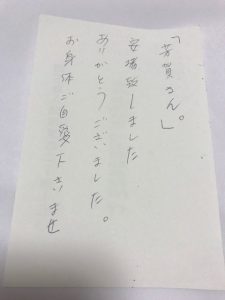 「芳賀さん。」
安堵致しました
ありがとうございました。
お身体ご自愛下さいませ